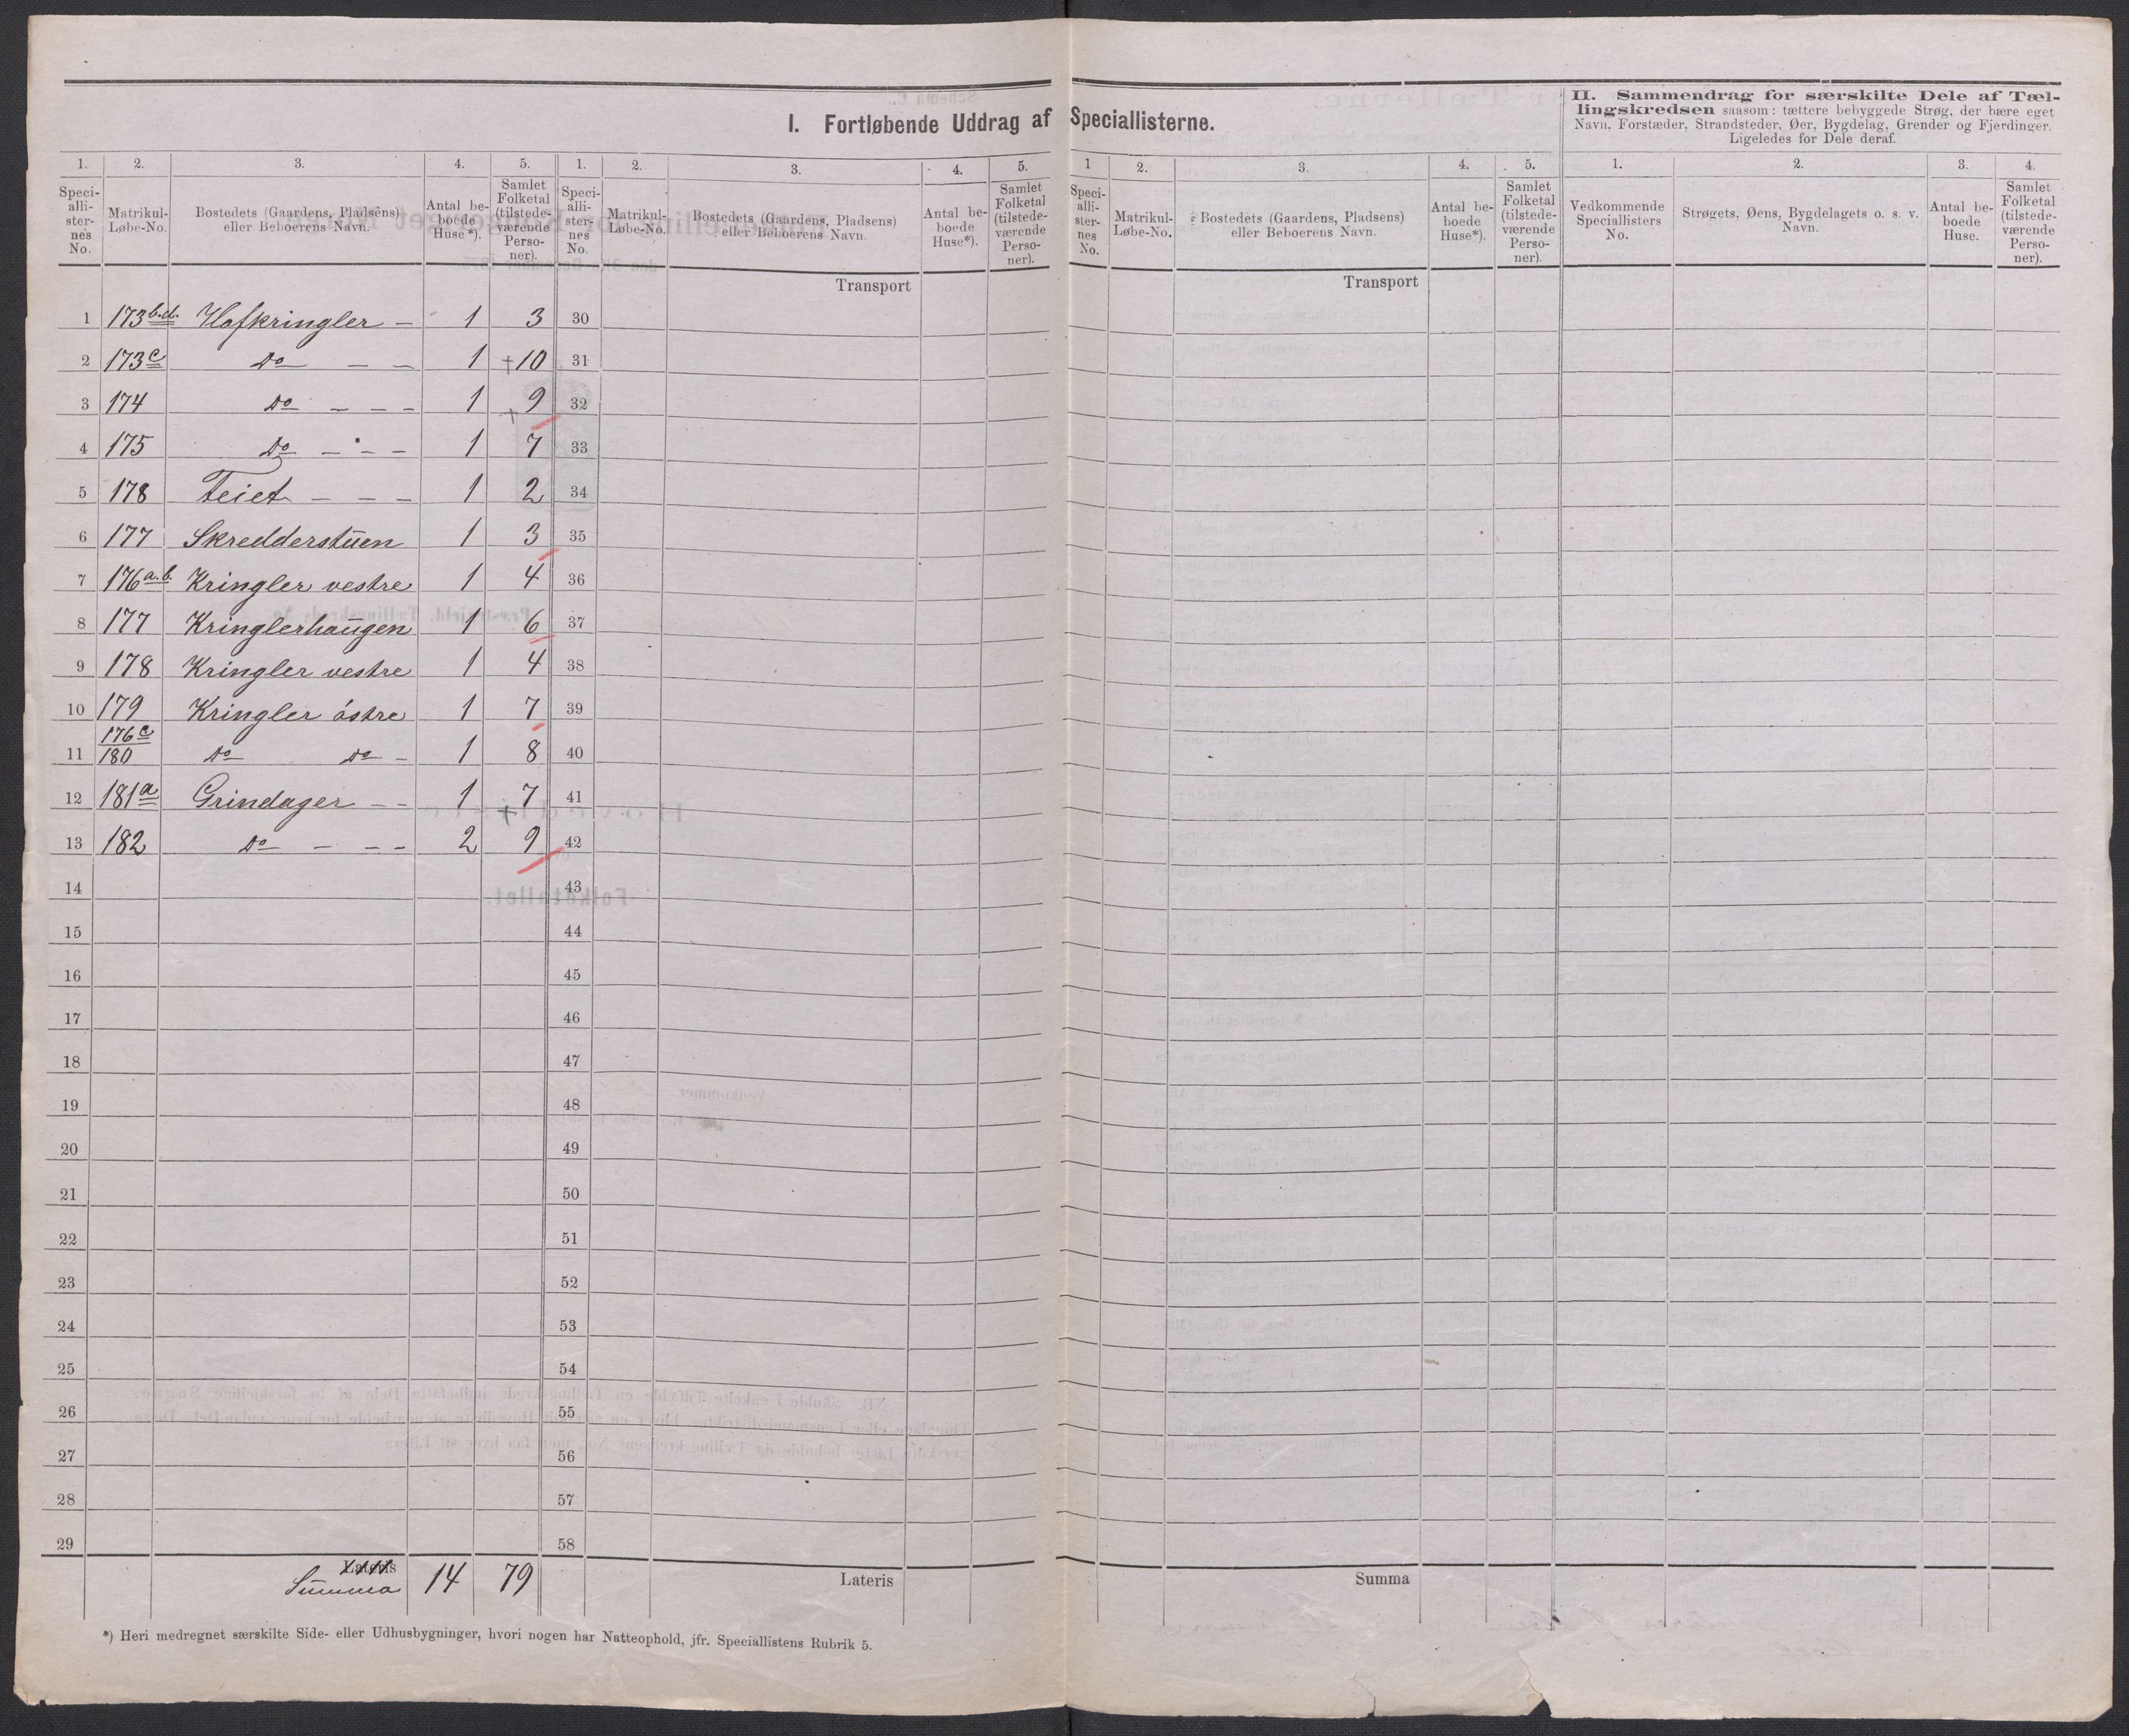 I. Fortløbende Uddrag af Speciallisterne.
II. Sammendrag for særskilte Dele af Tæl-
lingskredsen saasom: tættere bebyggede Strøg, der bære eget
Navn, Forstæder, Strandsteder, Øer, Bygdelag, Grender og Fjerdinger.
Ligeledes for Dele deraf.
1. 2. 3. 4. 5. 1. 2. 3. 4. 5. 1 2. 3. 4. 5. 1. 2. 3. 4.
Speci-
alli-
ster-
nes
No.
Matrikul-
Løbe-No.
Bostedets (Gaardens, Pladsens)
eller Beboerens Navn.
Antal be-
boede
Huse*).
Samlet
Folketal
(tilstede-
værende
Perso-
ner).
Speci-
alli-
ster-
nes
No.
Matrikul-
Løbe-No.
Bostedets (Gaardens, Pladsens)
eller Beboerens Navn.
Antal be-
boede
Huse*).
Samlet
Folketal
(tilstede-
værende
Perso-
ner).
Speci-
alli-
ster-
nes
No.
Matrikul-
Løbe-No.
Bostedets (Gaardens, Pladsens)
eller Beboerens Navn.
Antal be-
boede
Huse*).
Samlet
Folketal
(tilstede-
værende
Perso-
ner).
Vedkommende
Speciallisters
No.
Strøgets, Øens, Bygdelagets o. s. v.
Navn.
Antal be-
boede
Huse.
Samlet
Folketal
(tilstede-
værende
Perso-
ner).
Transport Transport
1 173 b.d. Hofkringler – 1 3 30
2 173 c do – – 1 +10 31
3 174 do – – – 1 9 32
4 175 do – – – 1 + 7 33
5 178 Teiet – – – 1 2 34
6 177 Skredderstuen 1 3 35
7 176 a.b. Kringler vestre 1 4 36
8 177 Kringlerhaugen 1 6 37
9 178 Kringler vestre 1 4 38
10 179 Kringler østre 1 7 39
11 176 c/180 do do – 1 8 40
12 181 a Grindager – – 1 7 41
13 182 do – – – 2 + 9 42
14 43
15 44
16 45
17 46
18 47
19 48
20 49
21 50
22 51
23 52
24 53
25 54
26 55
27 56
28 57
29 58
Lateris
Summa 14 79 Lateris Summa
*) Heri medregnet særskilte Side- eller Udhusbygninger, hvori nogen har Natteophold, jfr. Speciallistens Rubrik 5.